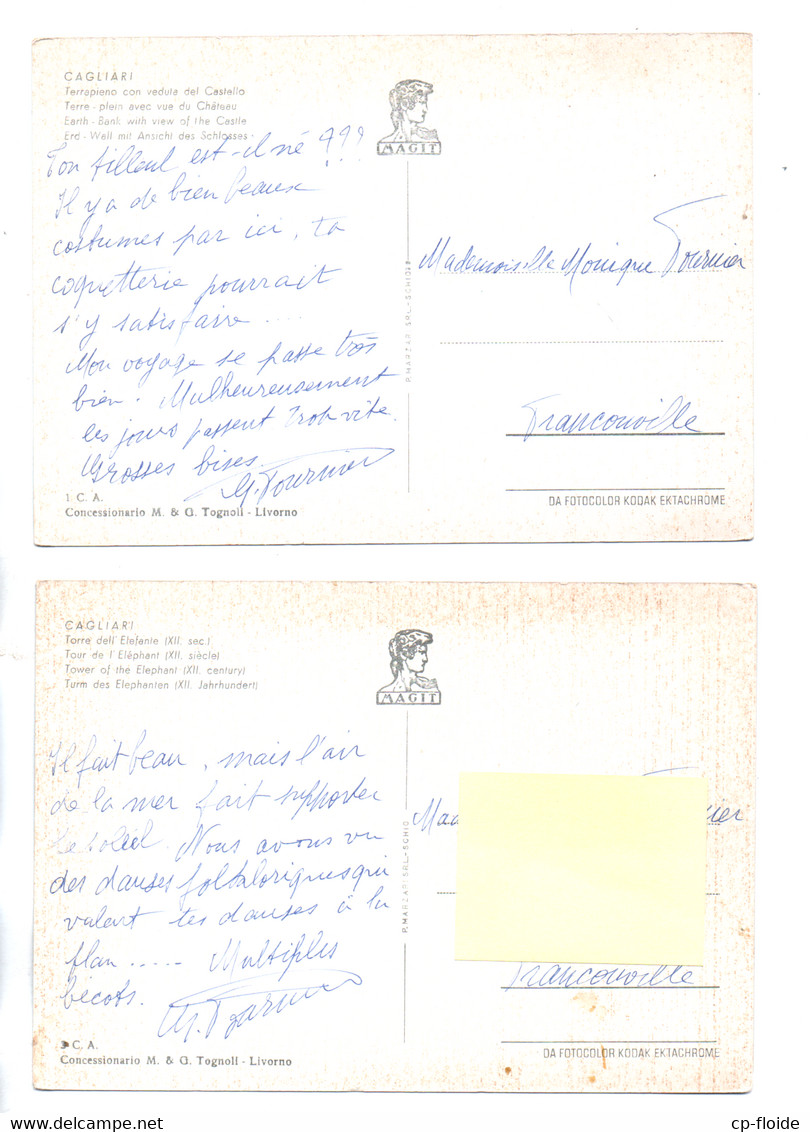 CAGLIARI
Terrapieno con veduta del Castello
Terre - plein avec vue du Château
Earth - Bank with view of the Castle
Erd - Wall mit Ansicht des Schlosses
MAGIT
Ton filleul est-il né ???
Il y a de bien beaux
costumes par ici, ta
coquetterie pourrait
s'y satisfaire ....
Mon voyage se passe très
bien. Malheureusement
les jours passent trop vite.
Grosses bises.
G. Fournier
1 C. A.
Concessionario M. & G. Tognoli - Livorno
P. MARZARI SRL-SCHIO
Mademoiselle Monique Fournier
Franconville
DA FOTOCOLOR KODAK EKTACHROME
CAGLIARI
Torre dell'Elefante (XII. sec.)
Tour de l'Eléphant (XII. siècle)
Tower of the Elephant (XII. century)
Turm des Elephanten (XII. Jahrhundert)
MAGIT
Il fait beau, mais l'air
de la mer fait supporter
le soleil. Nous avons vu
des danses folkloriques qui
valent tes danses à la
flan ..... Multiples
bécots.
G. Fournier
C. A.
Concessionario M. & G. Tognoli - Livorno
P. MARZARI SRL-SCHIO
Mad
nier
Franconville
DA FOTOCOLOR KODAK EKTACHROME
cp-floide